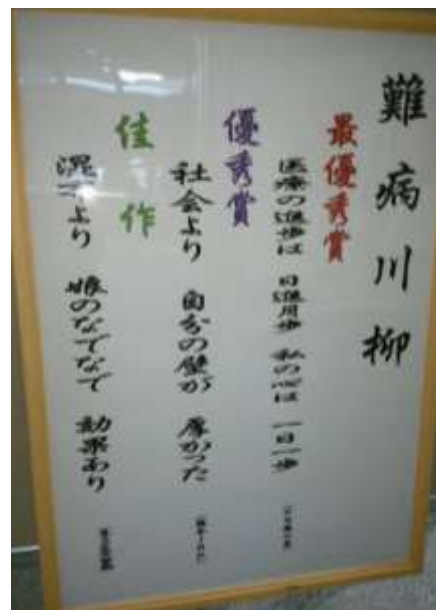 難病川柳
最優秀賞
医療の進歩は 日進月歩 私の心は 一日一歩
優秀賞
社会より 自分の壁が 厚かった
佳作
湿布より 娘のなでなで 効果あり